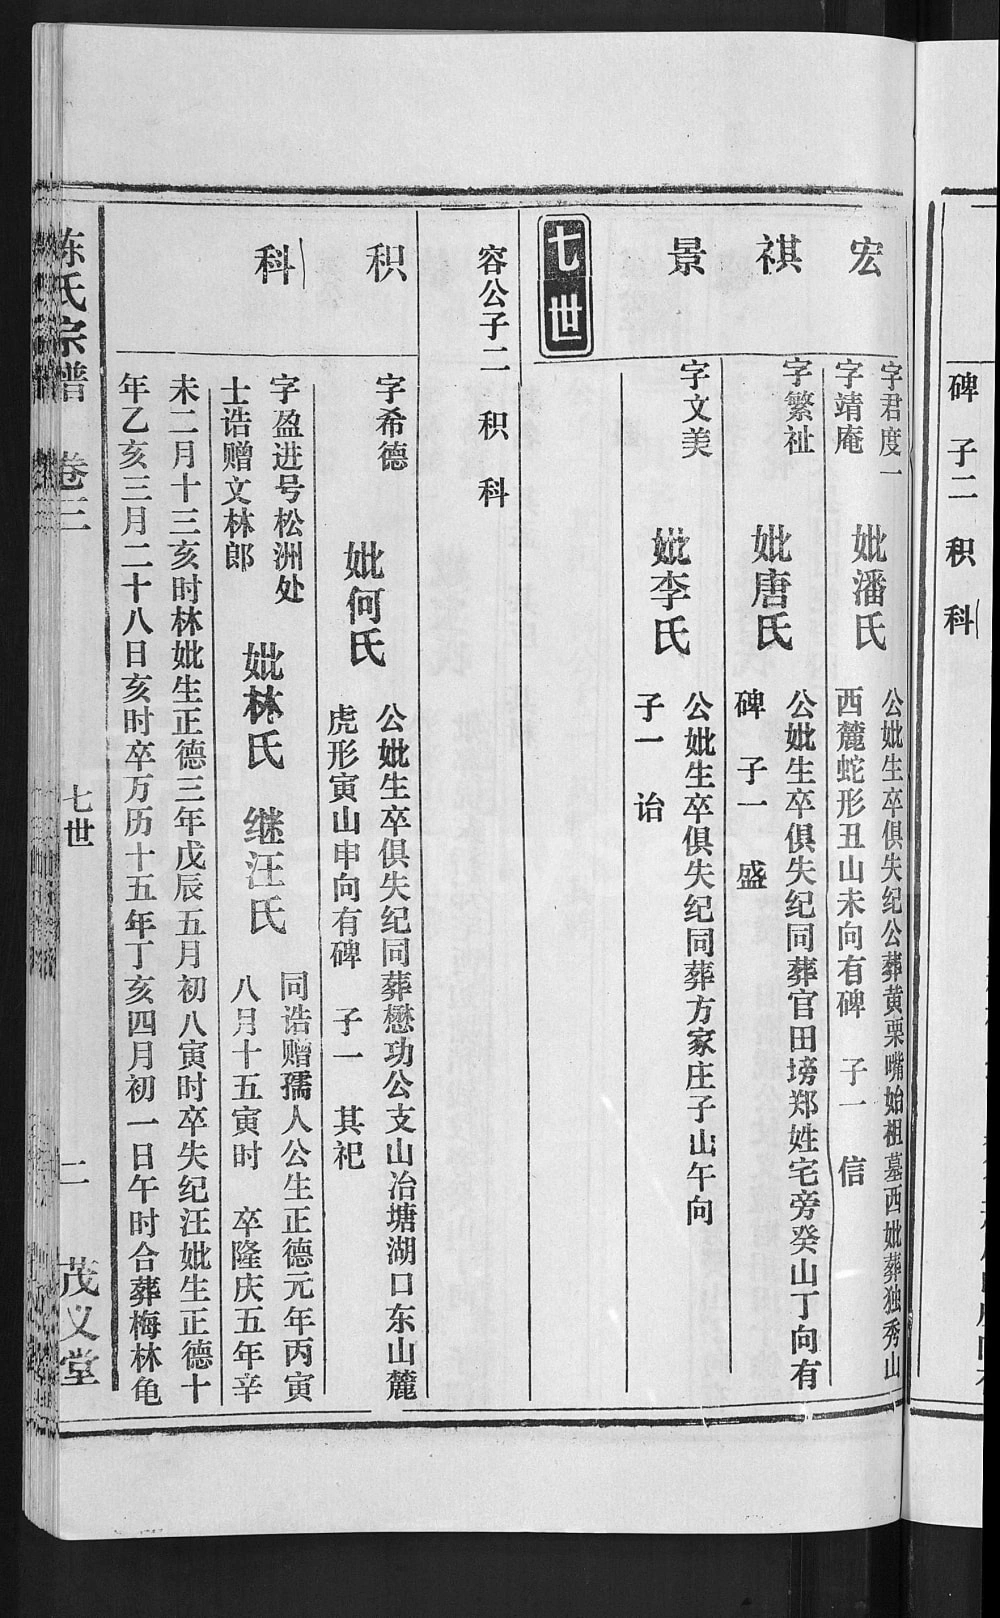 碑 子二 积 科
宏
字君度一
字靖庵
妣潘氏
公妣生卒俱失纪公葬黄栗嘴始祖墓西妣葬独秀山
西麓蛇形丑山未向有碑 子一 信
祺
字繁祉
妣唐氏
公妣生卒俱失纪同葬官田塝郑姓宅旁癸山丁向有
碑 子一 盛
景
字文美
妣李氏
公妣生卒俱失纪同葬方家庄子山午向
子一 诒
七世
容公子二 积 科
积
字希德
妣何氏
公妣生卒俱失纪同葬懋功公支山冶塘湖口东山麓
虎形寅山申向有碑 子一 其祀
科
字盈进号松洲处
士诰赠文林郎
妣林氏 继汪氏
同诰赠孺人公生正德元年丙寅
八月十五寅时 卒隆庆五年辛
未二月十三亥时林妣生正德三年戊辰五月初八寅时卒失纪汪妣生正德十
年乙亥三月二十八日亥时卒万历十五年丁亥四月初一日午时合葬梅林龟
陈氏宗谱 卷三 七世 二 茂义堂